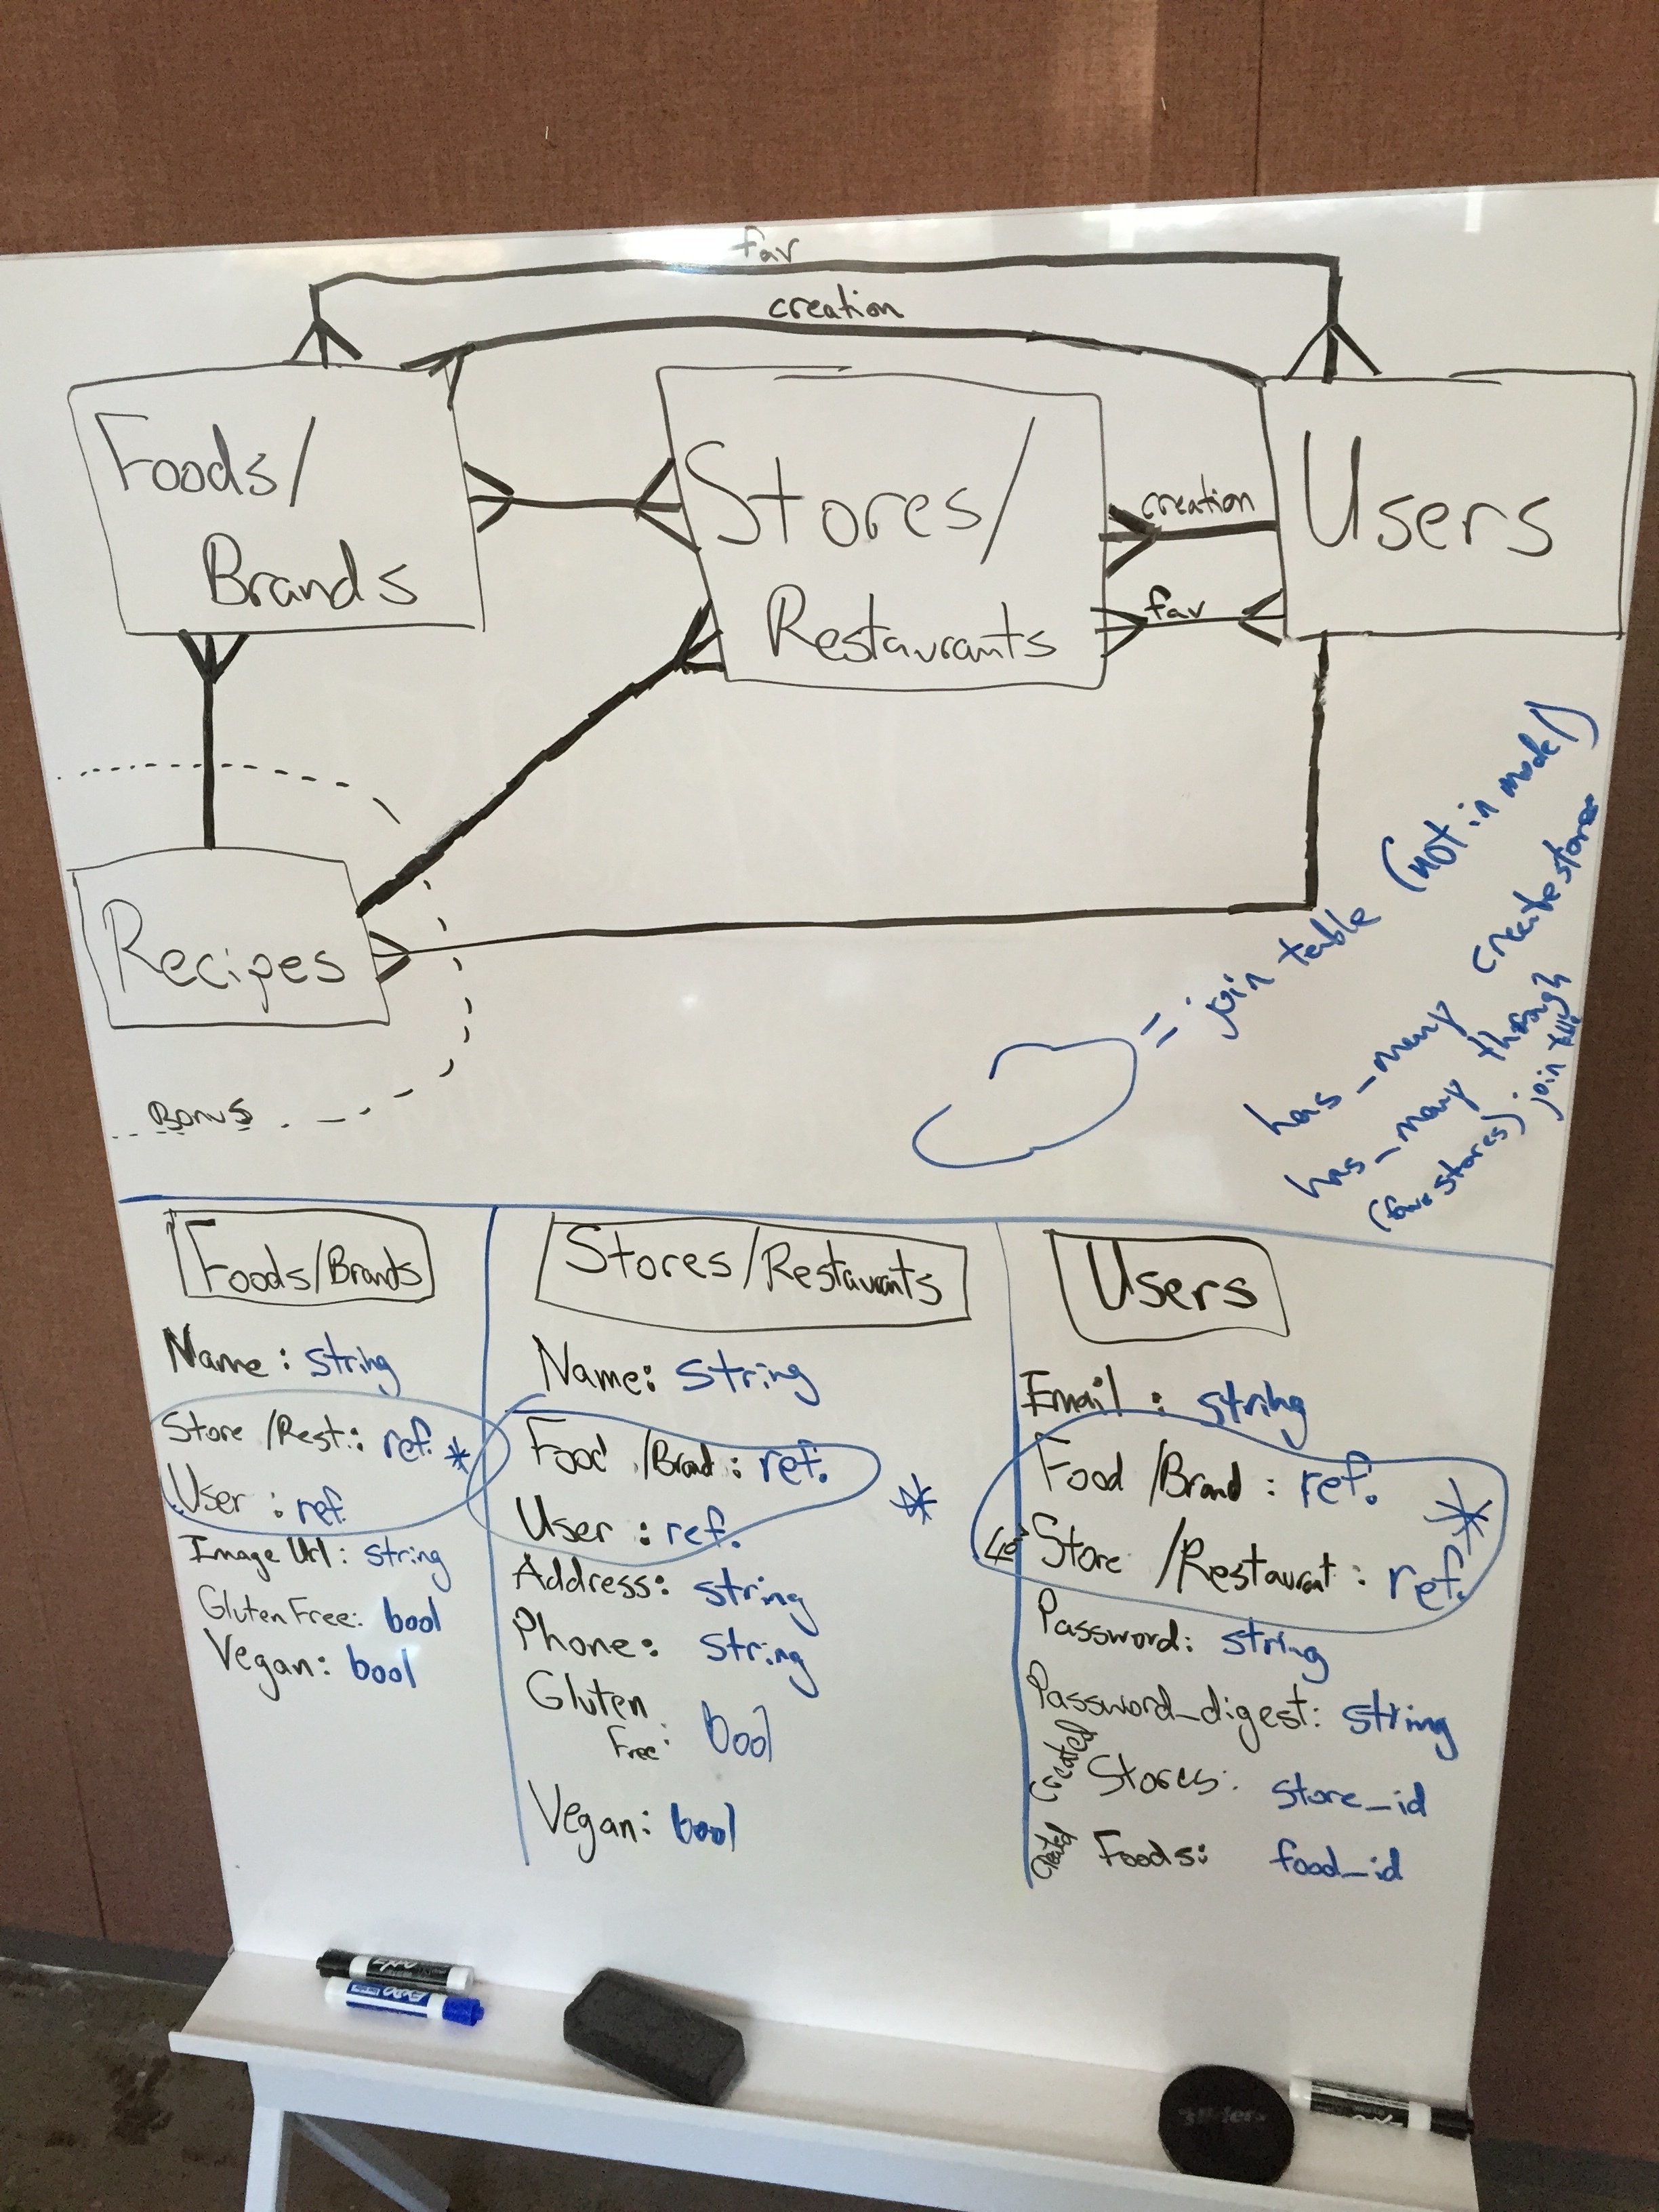 fav
creation
Foods/
Brands
Stores/
Restaurants
creation
fav
Users
Recipes
Bonus
= join table (not in model)
has-many create stores
has-many through
(fave stores) join
Foods/Brands
Name: String
Store/Rest.: ref. *
User: ref.
Image Url: string
Gluten Free: bool
Vegan: bool
Stores/Restaurants
Name: String
Food/Brand: ref.
User: ref.
*
Address: string
Phone: String
Gluten
Free: bool
Vegan: bool
Users
Email: string
Food/Brand: ref.
Store/Restaurant: ref. *
Password: string
Password_digest: string
Created Stores: store_id
Created Foods: food_id
EXPO